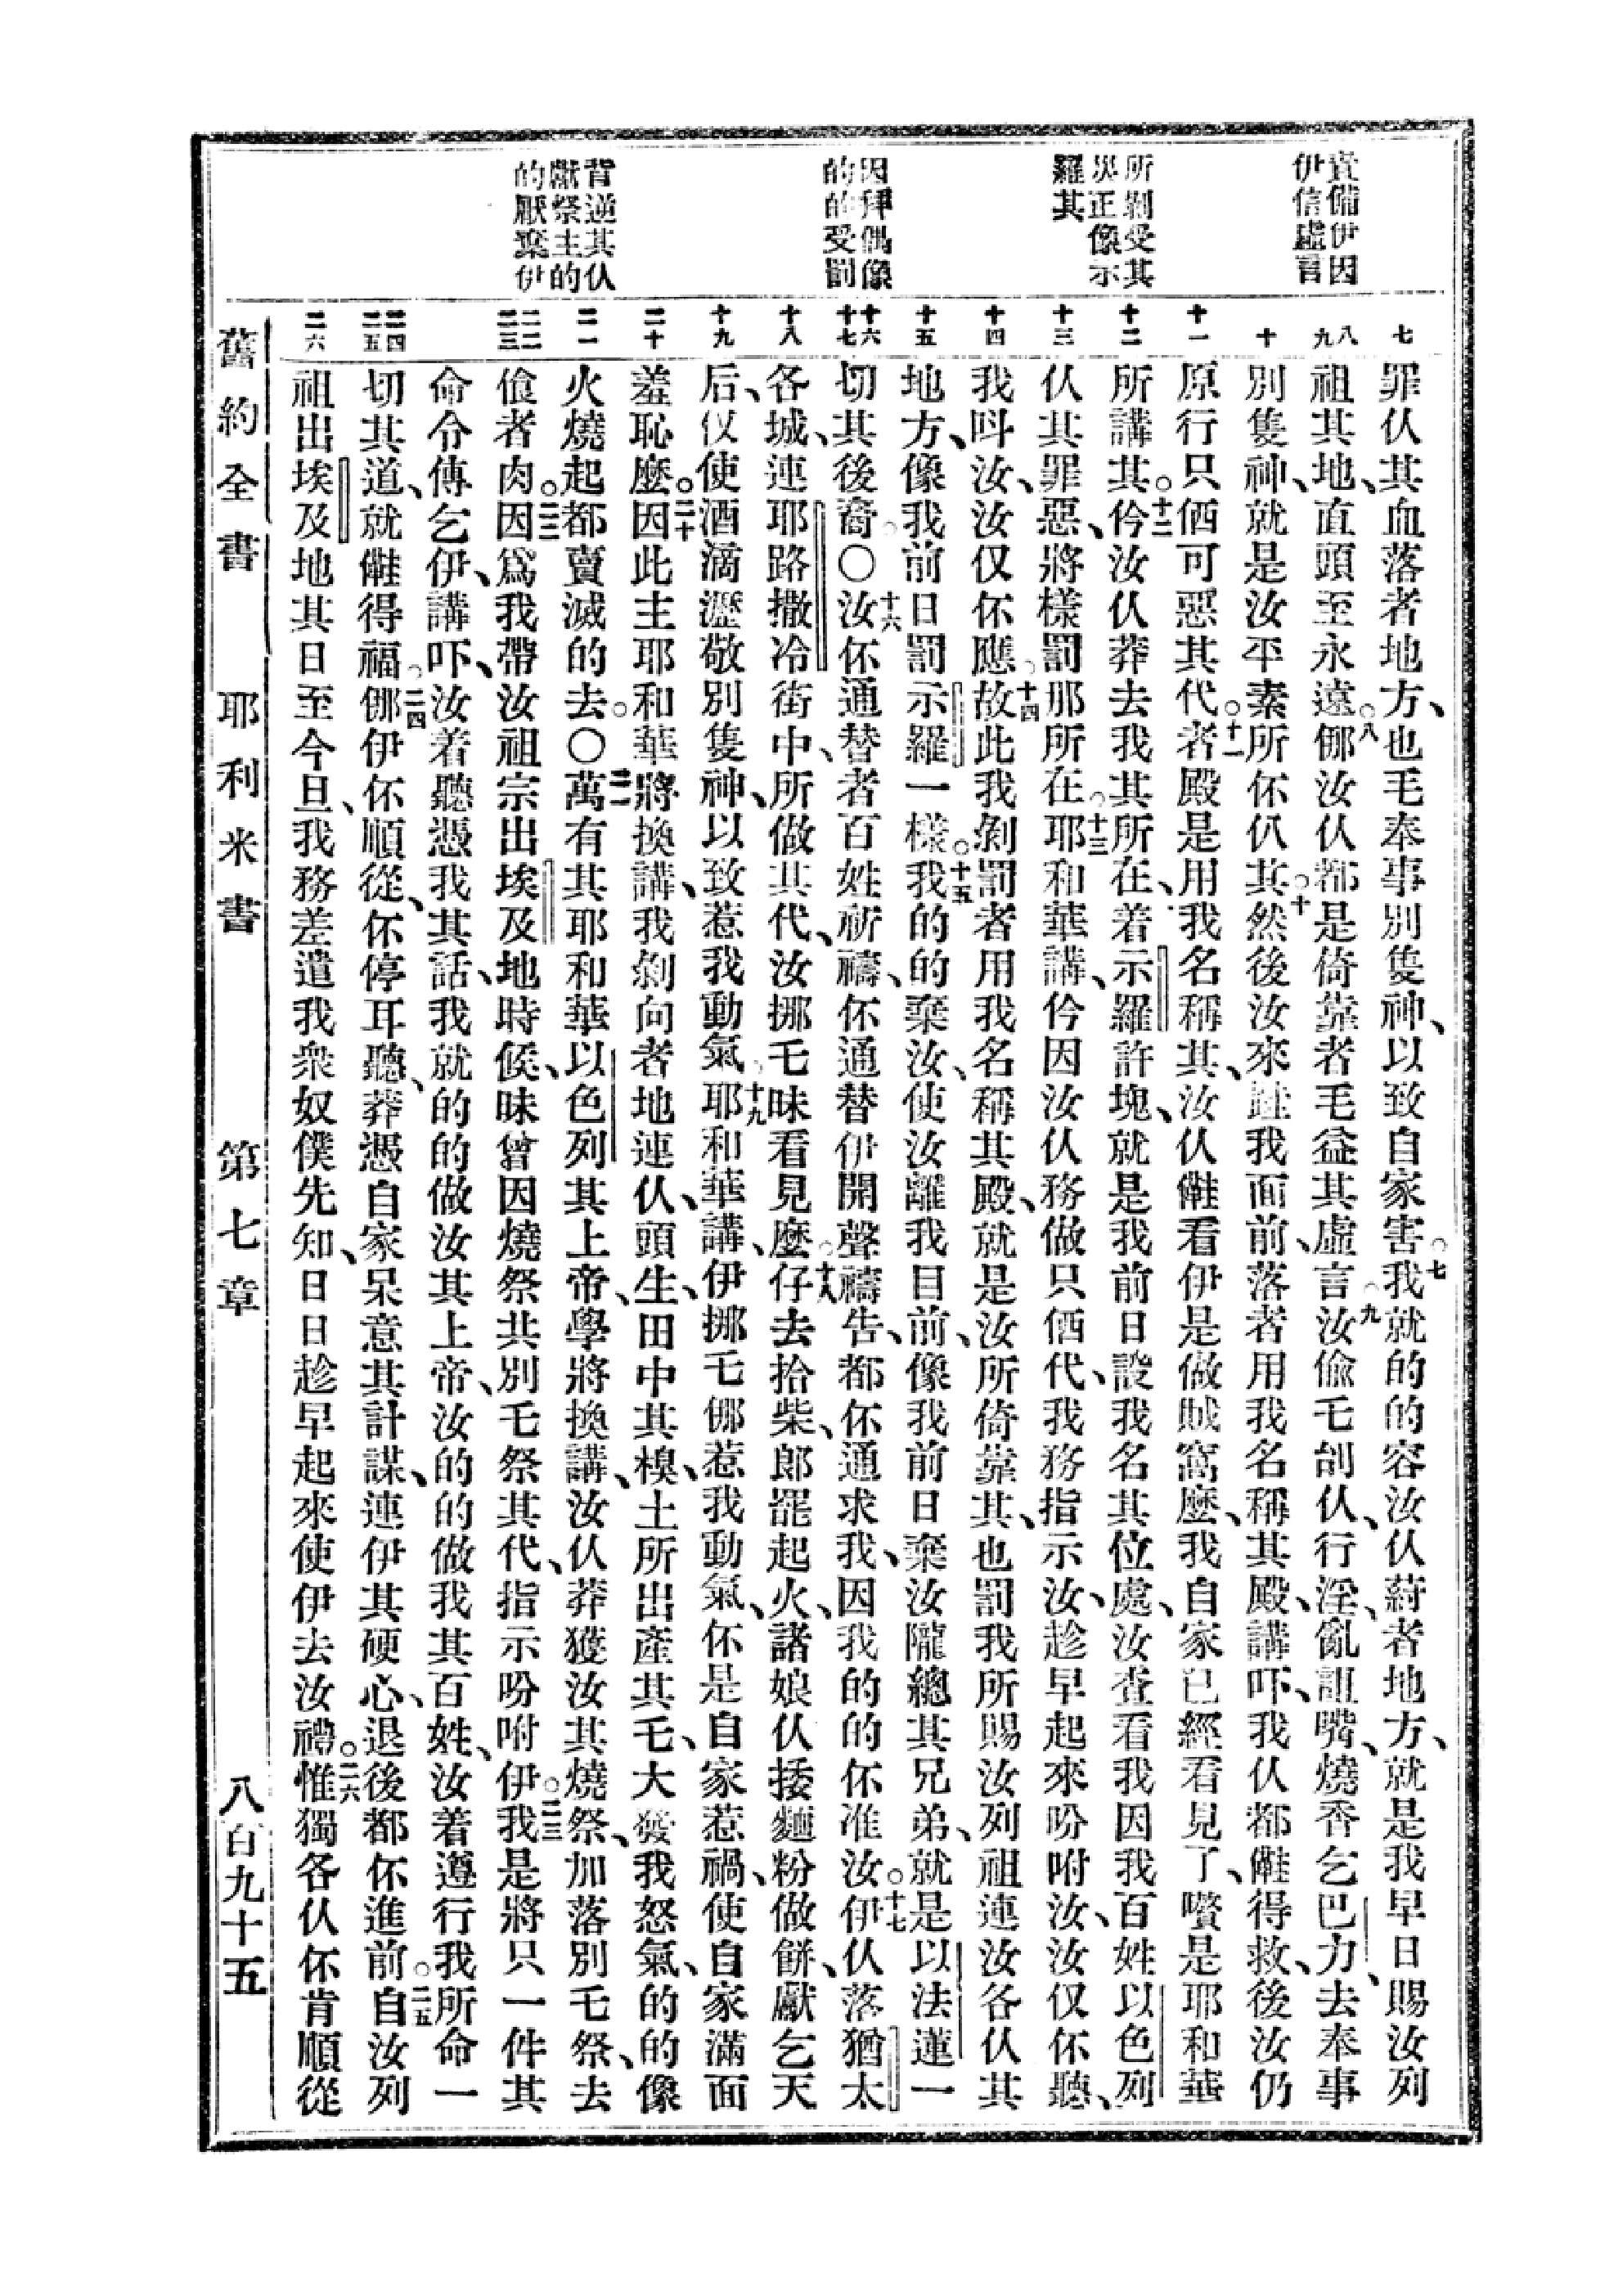 責備伊因
伊信虛言
所剝受其
災正像示
羅其
因拜偶像
的的受罰
背逆其仈
獻祭主的
的厭棄伊
七
八
九
十
十一
十二
十三
十四
十五
十六
十七
十八
十九
二十
二一
二二
二三
二四
二五
二六
罪仈其血落者地方、也毛奉事別隻神、以致自家害。七我就的的容汝仈蒔者地方、就是我早日賜汝列
祖其地、直頭至永遠。八𠲥汝仈都是倚靠者毛益其虛言。九汝偷乇、刣仈、行淫、亂詛嘴、燒香乞巴力、去奉事
別隻神、就是汝平素所伓仈其。十然後汝來、跬我面前、落者用我名稱其殿、講吓、我仈都㑲得救、後汝仍
原行只𠲥可惡其代。十一者殿是用我名稱其、汝仈㑲看伊是做賊窩麼、我自家已經看見了、嚽是耶和華
所講其。十二仱汝仈莽去我其所在、着示羅許塊、就是我前日設我名其位處、汝查看我因我百姓以色列
仈其罪惡、將樣罰那所在。十三耶和華講、仱因汝仈務做只𠲥代、我務指示汝、趁早起來吩咐汝、汝仅伓聽、
我呌汝、汝仅伓應。十四故此我剝罰者用我名稱其殿、就是汝所倚靠其、也罰我所賜汝列祖連汝各仈其
地方、像我前日罰示羅一樣。十五我的的棄汝、使汝離我目前、像我前日棄汝隴總其兄弟、就是以法蓮一
切其後裔。〇十六汝伓通替者百姓祈禱、伓通替伊開聲禱告、都伓通求我、因我的的伓准汝。十七伊仈落猶太
各城、連耶路撒冷街中、所做其代、汝挪乇昧看見麼。十八仔去拾柴、郎罷起火、諸娘仈捼麵粉做餅、獻乞天
后、仅使酒滴瀝敬別隻神、以致惹我動氣。十九耶和華講、伊挪乇𠲥惹我動氣、伓是自家惹禍、使自家滿面
羞恥麼。二十因此主耶和華將換講、我剝向者地連仈、頭生、田中其模、土所出產其乇、大發我怒氣、的的像
火燒起都賣滅的去。〇二一萬有其耶和華以色列其上帝、學將換講、汝仈莽獲汝其燒祭、加落別乇祭、去
飡者肉。二二因爲我帶汝祖宗出埃及地時候、昧曾因燒祭共別乇祭其代、指示吩咐伊。二三我是將只一件其
命令傳乞伊、講吓、汝着聽憑我其話、我就的的做汝其上帝、汝的的做我其百姓、汝着遵行我所命一
切其道、就㑲得福。二四𠲥伊伓順從、伓停耳聽、莽憑自家呆意其計謀、連伊其硬心、退後都伓進前。二五自汝列
祖出埃及地其日至今旦、我務差遣我衆奴僕先知、日日趁早起來使伊去汝禮。二六惟獨各仈伓肯順從
舊約全書　耶利米書　第七章　八百九十五